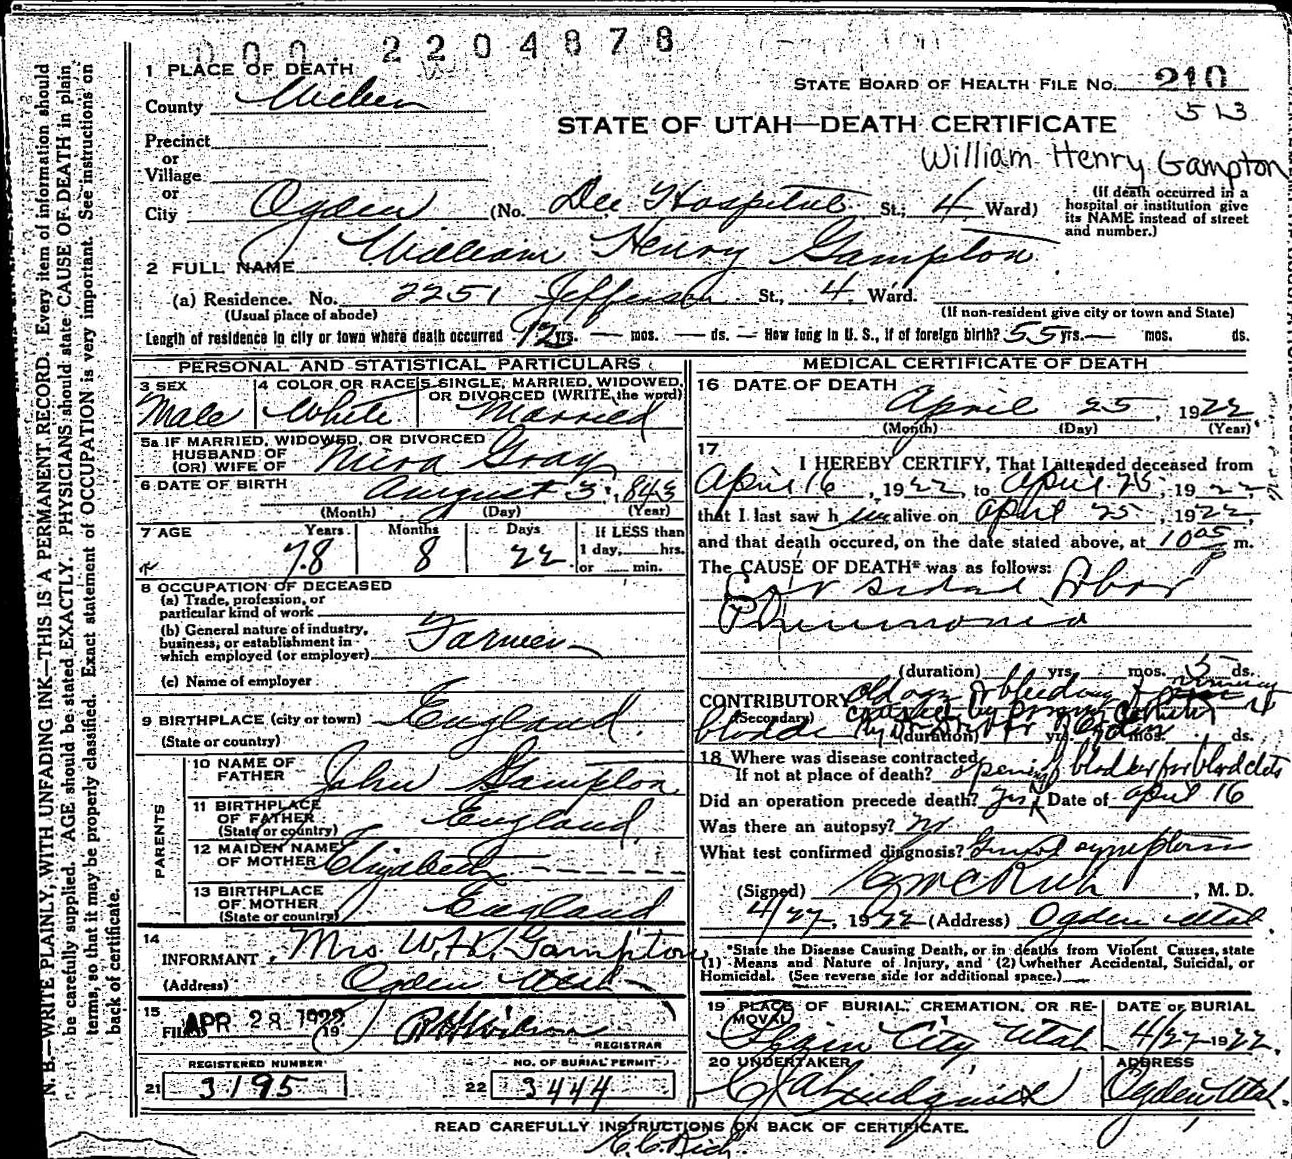 000 2204878
1 PLACE OF DEATH
County Weber
STATE BOARD OF HEALTH FILE No. 210
513
Precinct
or
Village
or
STATE OF UTAH—DEATH CERTIFICATE
William Henry Gampton
City Ogden (No. Dee Hospital St.; 4 Ward)
(If death occurred in a hospital or institution give its NAME instead of street and number.)
2 FULL NAME William Henry Gampton
(a) Residence. No. 2251 Jefferson St., 4. Ward.
(Usual place of abode)
(If non-resident give city or town and State)
Length of residence in city or town where death occurred 12 yrs. — mos. — ds. — How long in U. S., if of foreign birth? 55 yrs. — mos. ds.
PERSONAL AND STATISTICAL PARTICULARS
3 SEX
Male
4 COLOR OR RACE
White
5 SINGLE, MARRIED, WIDOWED, OR DIVORCED (WRITE the word)
Married
5a IF MARRIED, WIDOWED, OR DIVORCED
HUSBAND OF
(OR) WIFE OF Gray
6 DATE OF BIRTH August 3, 1843
(Month) (Day) (Year)
7 AGE Years Months Days If LESS than
78 8 22 1 day, hrs.
or min.
8 OCCUPATION OF DECEASED
(a) Trade, profession, or
particular kind of work
(b) General nature of industry,
business, or establishment in
which employed (or employer) Farmer
(c) Name of employer
9 BIRTHPLACE (city or town) England.
(State or country)
PARENTS
10 NAME OF
FATHER John Gampton
11 BIRTHPLACE
OF FATHER England
(State or country)
12 MAIDEN NAME
OF MOTHER Elizabeth
13 BIRTHPLACE
OF MOTHER England
(State or country)
14
INFORMANT Mrs. W. H. Gampton
(Address) Ogden Utah
15
FILED APR 28 1922 19
R H Wilson
REGISTRAR
REGISTERED NUMBER NO. OF BURIAL PERMIT
21 3195 22 3444
MEDICAL CERTIFICATE OF DEATH
16 DATE OF DEATH
April 25, 1922
(Month) (Day) (Year)
17
I HEREBY CERTIFY, That I attended deceased from
April 16, 1922 to April 25, 1922
that I last saw him alive on April 25, 1922,
and that death occured, on the date stated above, at 10 05 P m.
The CAUSE OF DEATH* was as follows:
sided Lobar
Pneumonia
(duration) yrs. mos. 5 ds.
CONTRIBUTORY old age & bleeding
(Secondary)
(duration) yrs. mos. ds.
18 Where was disease contracted
If not at place of death? opening bladder for blood clots
Did an operation precede death? yes Date of April 16
Was there an autopsy? No
What test confirmed diagnosis? symptoms
(Signed) Rich, M. D.
4/27, 1922 (Address) Ogden Utah.
*State the Disease Causing Death, or in deaths from Violent Causes, state
(1) Means and Nature of Injury, and (2) whether Accidental, Suicidal, or
Homicidal. (See reverse side for additional space.)
19 PLACE OF BURIAL, CREMATION, OR RE-
MOVAL
City Utah
DATE OF BURIAL
4/27 1922.
20 UNDERTAKER
Lindquist
ADDRESS
Ogden Utah.
READ CAREFULLY INSTRUCTIONS ON BACK OF CERTIFICATE.
Rich.
N. B.—WRITE PLAINLY, WITH UNFADING INK—THIS IS A PERMANENT RECORD. Every item of information should
be carefully supplied. AGE should be stated EXACTLY. PHYSICIANS should state CAUSE OF DEATH in plain
terms, so that it may be properly classified. Exact statement of OCCUPATION is very important. See instructions on
back of certificate.